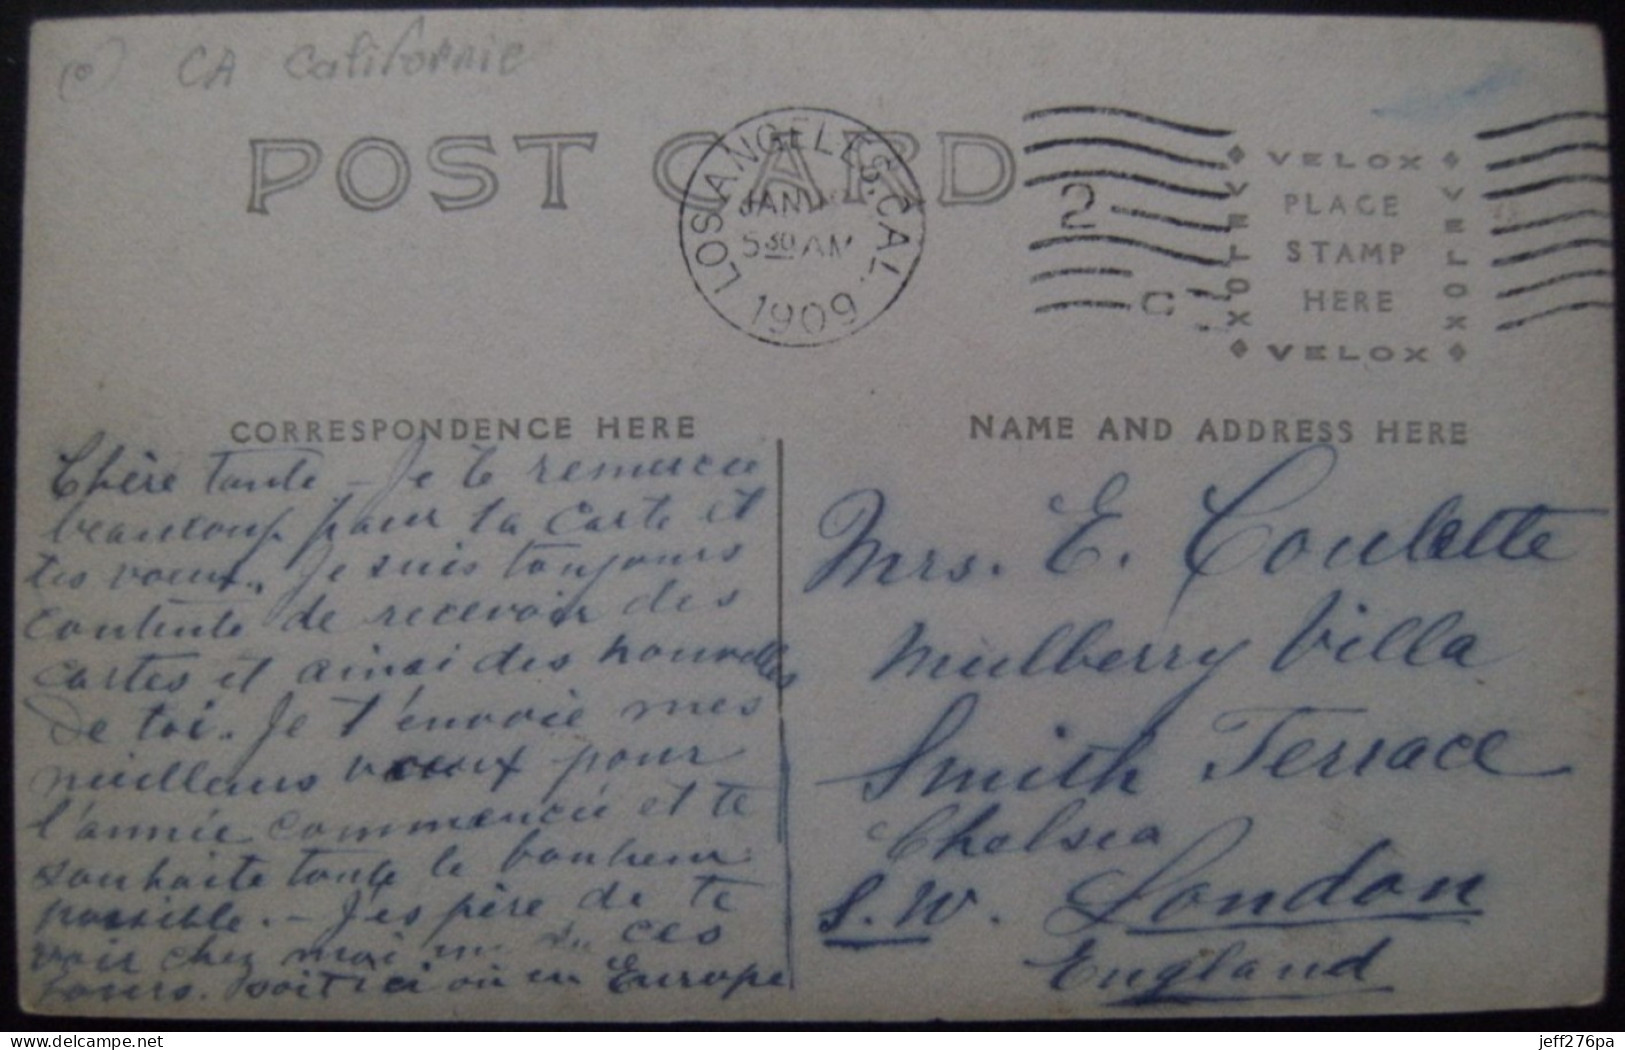 CA Californie
POST CARD
LOS ANGELES. CAL.
JAN
5 30 AM
1909
2
C
VELOX
VELOX
VELOX
VELOX
PLACE
STAMP
HERE
CORRESPONDENCE HERE
Chère tante – Je te remercie
beaucoup pour ta carte et
tes voeux. Je suis toujours
contente de recevoir des
cartes et ainsi des nouvelles
de toi. Je t'envoie mes
meilleurs voeux pour
l'année commencée et te
souhaite toute le bonheur
possible. – J'espère de te
voir chez moi un de ces
jours. soit ici ou en Europe
NAME AND ADDRESS HERE
Mrs. E. Coulette
Mulberry Villa
Smith Terrace
Chelsea
S.W. London
England
www.delcampe.net
jeff276pa